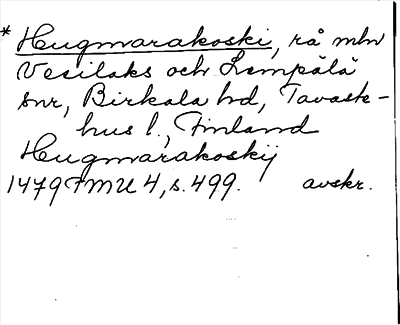 * Hugmvarakoski, rå mln
Vesilaks och Lempälä
snr, Birkala hd, Tavaste-
hus l., Finland
Hugmvarakoskij
1479 FMU 4, s. 499. avskr.